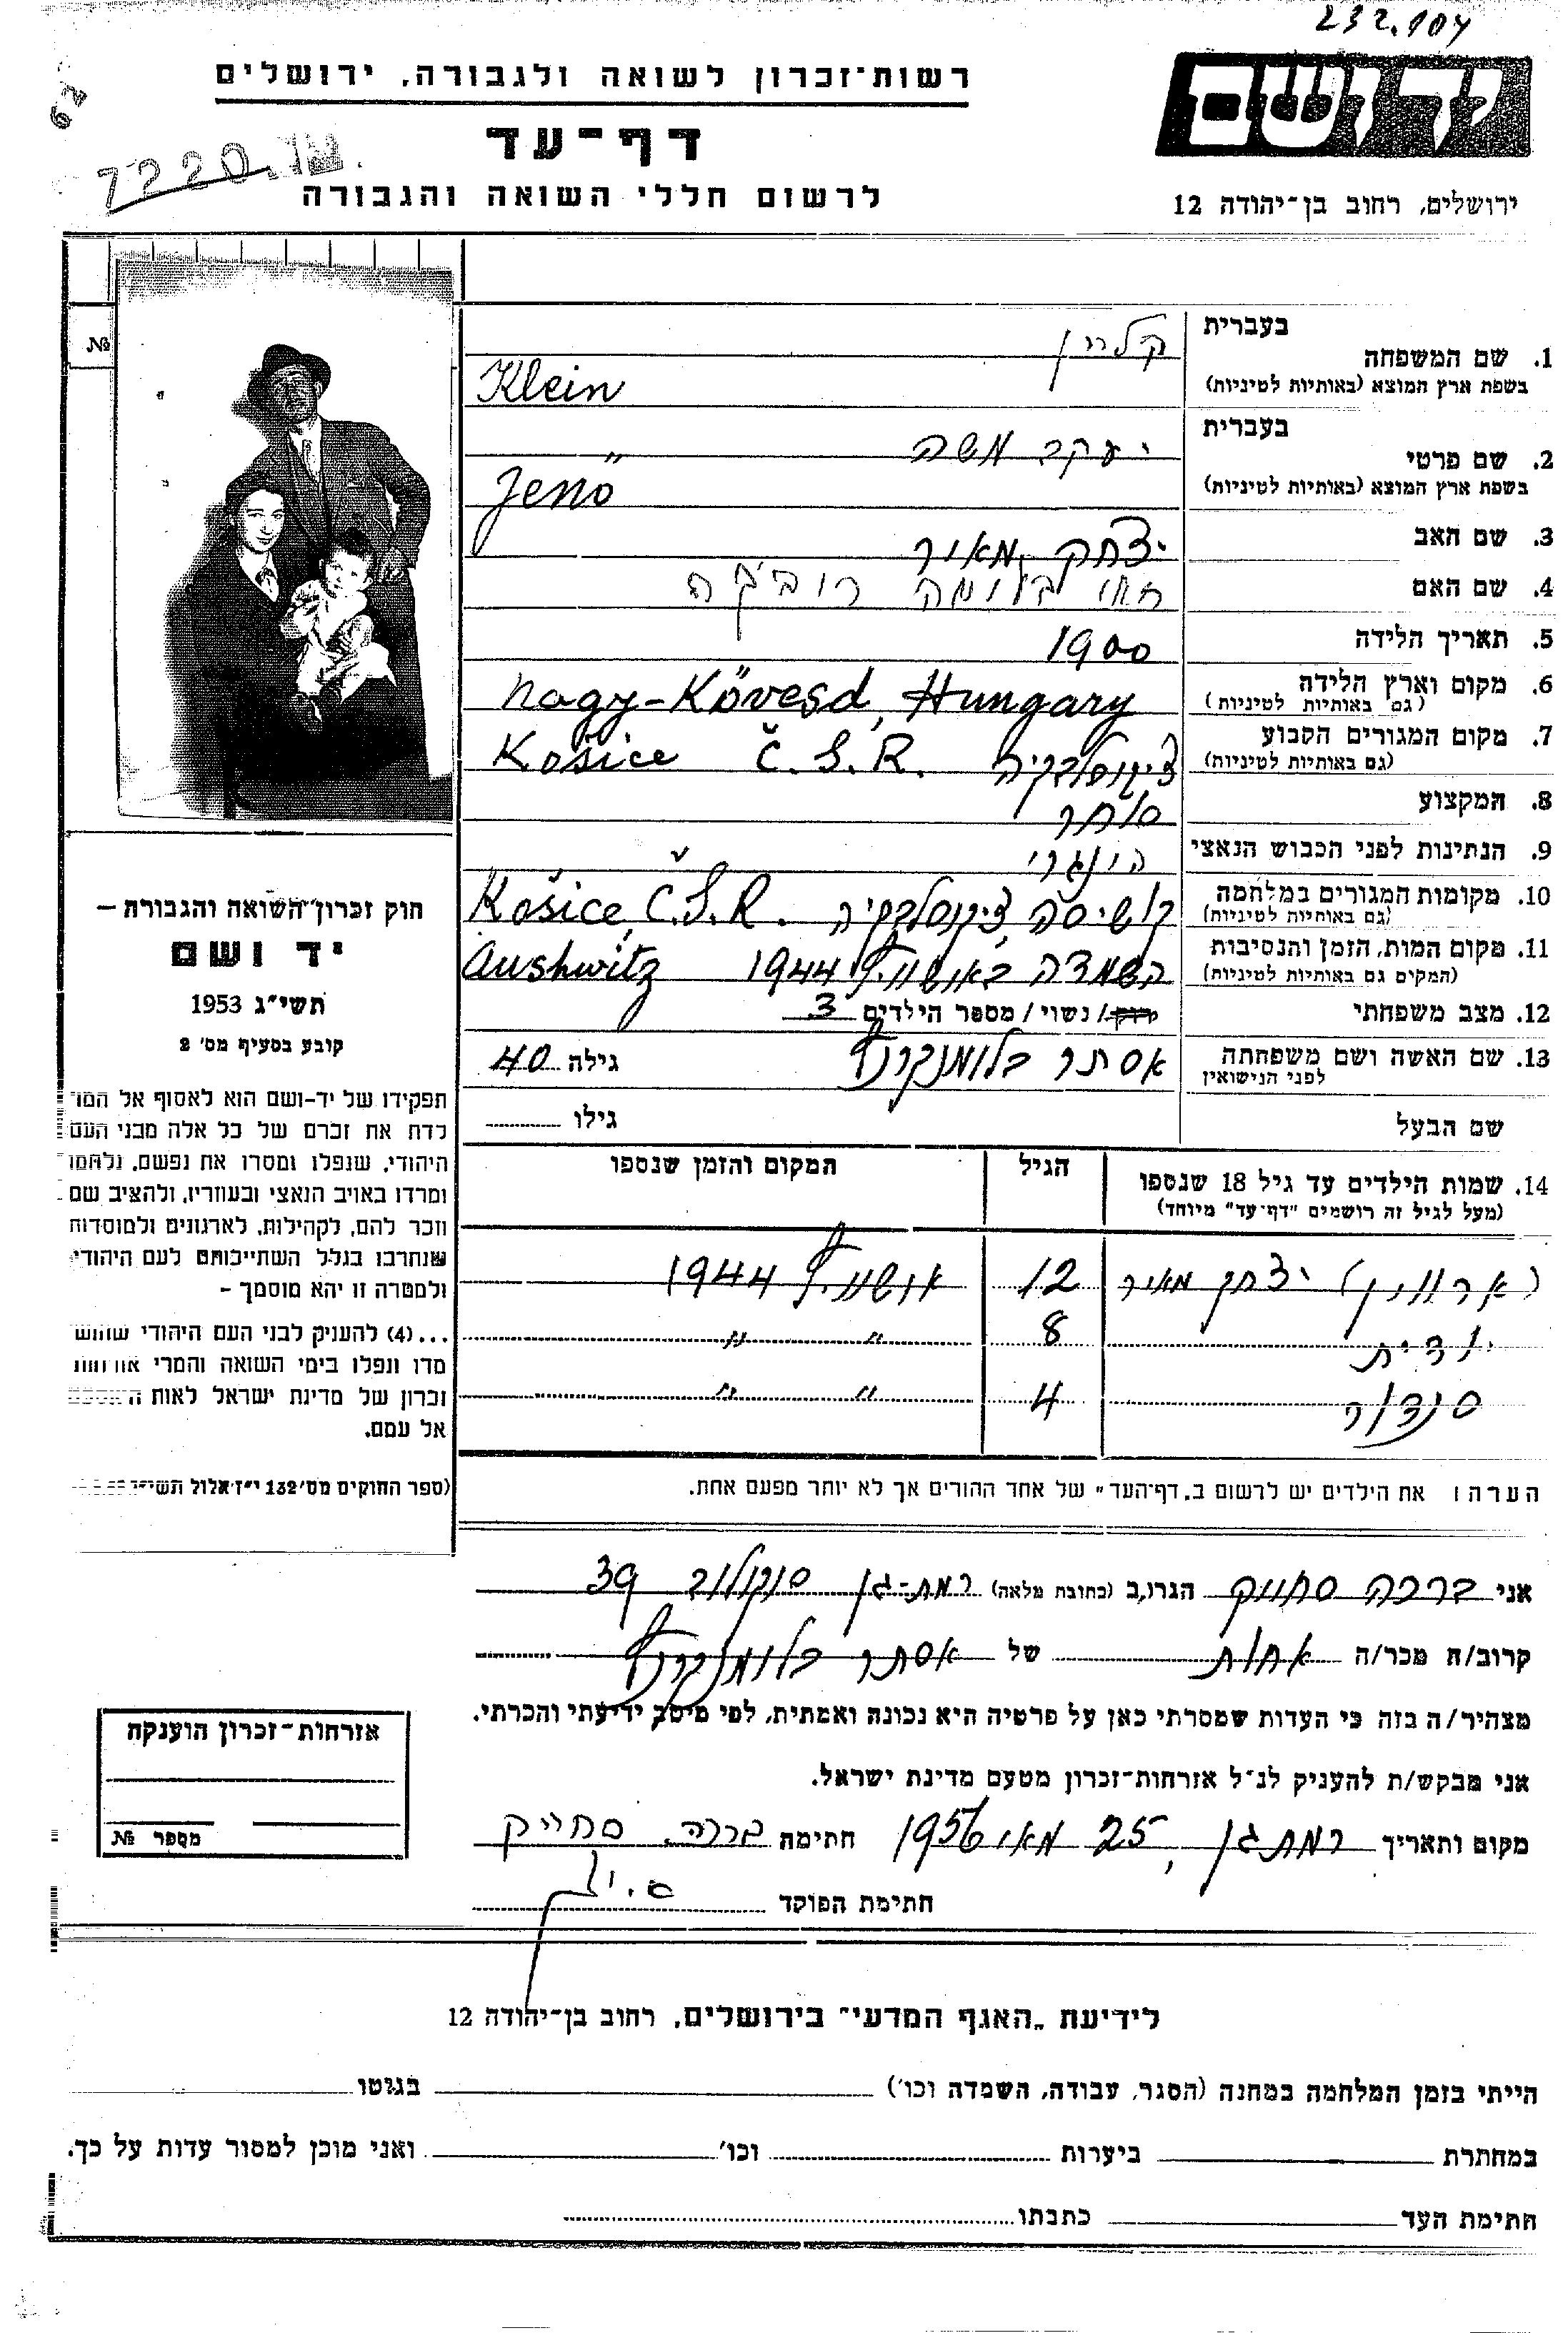 232.104
רשות־זכרון לשואה ולגבורה, ירושלים
ידושם
דף־עד
7220
לרשום חללי השואה והגבורה
ירושלים, רחוב בן־יהודה 12
№
בעברית
1. שם המשפחה קליין
בשפת ארץ המוצא (באותיות לטיניות) Klein
בעברית
2. שם פרטי יעקב משה
בשפת ארץ המוצא (באותיות לטיניות) Jenő
3. שם האב יצחק מאיר
4. שם האם בלומה
5. תאריך הלידה 1900
6. מקום וארץ הלידה Nagy-Kövesd, Hungary
(גם באותיות לטיניות)
7. מקום המגורים הקבוע צ'כוסלבקיה Košice Č.S.R.
(גם באותיות לטיניות)
8. המקצוע סוחר
9. הנתינות לפני הכבוש הנאצי הונגרי
10. מקומות המגורים במלחמה קושיסה, צ'כוסלבקיה Košice, Č.S.R.
(גם באותיות לטיניות)
11. מקום המות, הזמן והנסיבות השמדה באושוויץ 1944 Aushwitz
(המקום גם באותיות לטיניות)
12. מצב משפחתי רוק/ נשוי / מספר הילדים 3
13. שם האשה ושם משפחתה אסתר בלומנקרנץ גילה 40
לפני הנישואין
שם הבעל גילו
14. שמות הילדים עד גיל 18 שנספו הגיל המקום והזמן שנספו
(מעל לגיל זה רושמים "דף־עד" מיוחד)
(ארווין) יצחק מאיר 12 אושוויץ 1944
יודית 8 " "
סנדור 4 " "
חוק זכרון השואה והגבורה –
יד ושם
תשי"ג 1953
קובע בסעיף מס' 2
תפקידו של יד-ושם הוא לאסוף אל המו
לדת את זכרם של כל אלה מבני העם
היהודי, שנפלו ומסרו את נפשם, נלחמו
ומרדו באויב הנאצי ובעוזריו, ולהציב שם
וזכר להם, לקהילות, לארגונים ולמוסדות
שנחרבו בגלל השתייכותם לעם היהודי
ולמטרה זו יהא מוסמך –
...(4) להעניק לבני העם היהודי שהוש
מדו ונפלו בימי השואה והמרי אזרחות
זכרון של מדינת ישראל לאות האספם
אל עמם.
(ספר החוקים מס' 132 י"ז אלול תשי"ג
הערה: את הילדים יש לרשום ב"דף־העד" של אחד ההורים אך לא יותר מפעם אחת.
אני ברכה סחייק הגר/ב (כתובת מלאה) רמת-גן סוקולוב 39
קרוב/ה מכר/ה אחות של אסתר בלומנקרנץ
מצהיר/ה בזה כי העדות שמסרתי כאן על פרטיה היא נכונה ואמתית, לפי מיטב ידיעתי והכרתי.
אני מבקש/ת להעניק לנ"ל אזרחות־זכרון מטעם מדינת ישראל.
מקום ותאריך רמת גן, 25 מאי 1956 חתימה ברכה סחייק
חתימת הפוקד
אזרחות־זכרון הוענקה
מספר №
לידיעת "האגף המדעי" בירושלים, רחוב בן־יהודה 12
הייתי בזמן המלחמה במחנה (הסגר, עבודה, השמדה וכו') בגיטו
במחתרת ביערות וכו' ואני מוכן למסור עדות על כך.
חתימת העד כתבתו